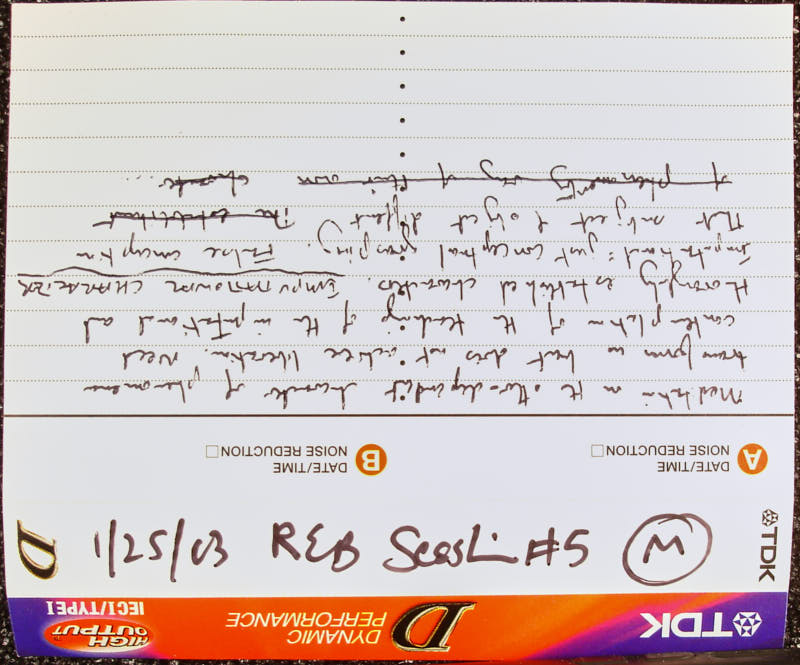 TDK
HIGH OUTPUT
IEC I/TYPE I
D DYNAMIC PERFORMANCE
TDK
1/25/03 REB Session #5 M
D
A DATE/TIME
NOISE REDUCTION
B DATE/TIME
NOISE REDUCTION
Meditation on the other-dependent character of phenomena
transforms us but does not achieve liberation. Need
contemplation of the teaching of the imputational and
thoroughly established characters. IMPUTATIONAL CHARACTER
just conceptual grasping. False conception
that subject & object different. The
of phenomena by way of their own character ...